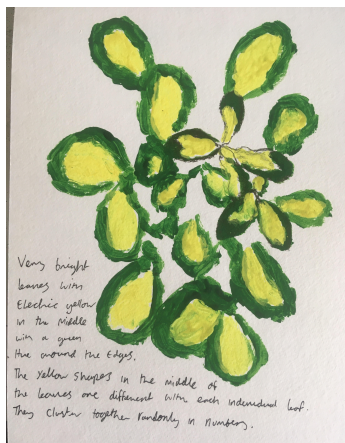 Very bright
leaves with
Electric yellow
in the Middle
with a green
Hue around the Edges.
The yellow shapes in the middle of
the leaves are different with each individual leaf.
They cluster together randomly in numbers.